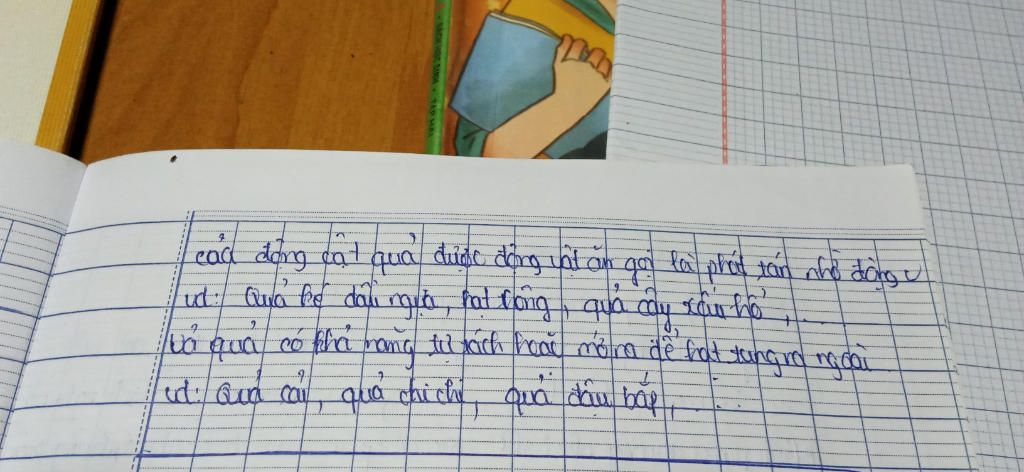 của động vật quả được động vật ăn gọi là phát tán nhờ động v
vd: Quả ké đầu ngựa, hạt thông, quả cây xấu hổ, ...
vỏ quả có khả năng tự tách hoặc mở ra để hạt tung ra ngoài
vd: Quả cải, quả chi chi, quả đậu bắp, ...